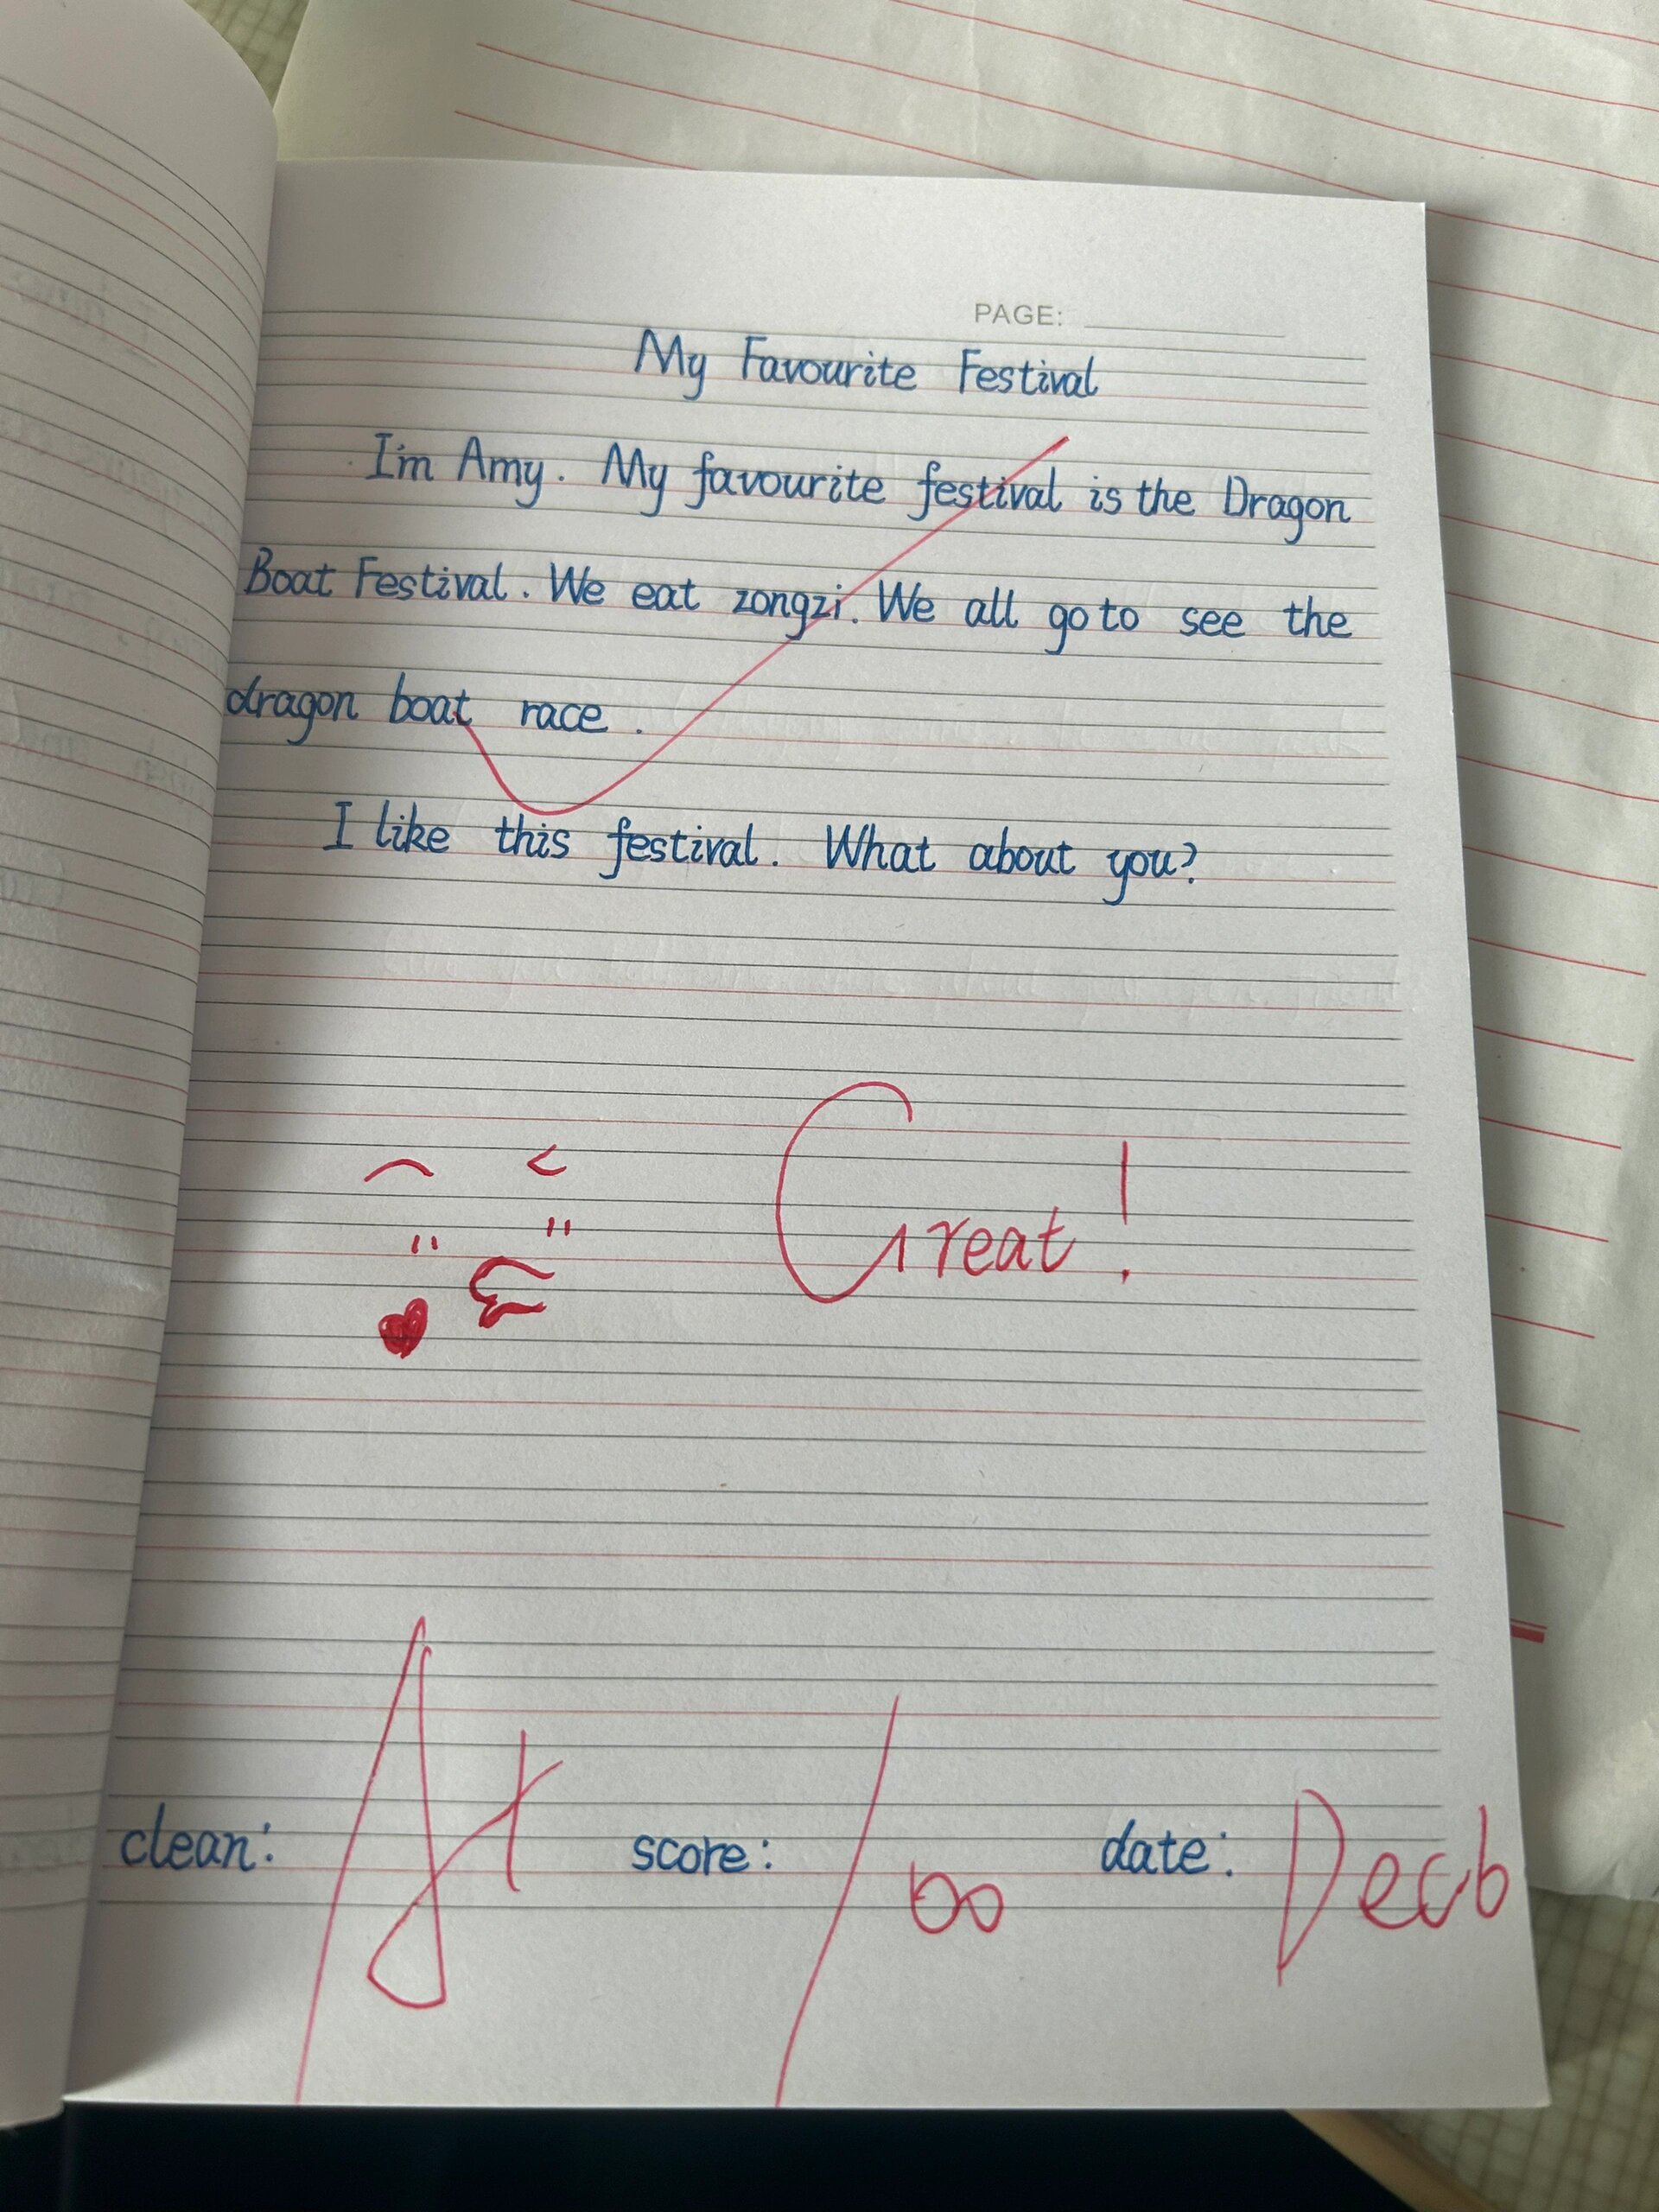 PAGE:
My Favourite Festival
I'm Amy. My favourite festival is the Dragon
Boat Festival. We eat zongzi. We all go to see the
dragon boat race.
I like this festival. What about you?
Great!
clean: A+ score: 100 date: Dec6